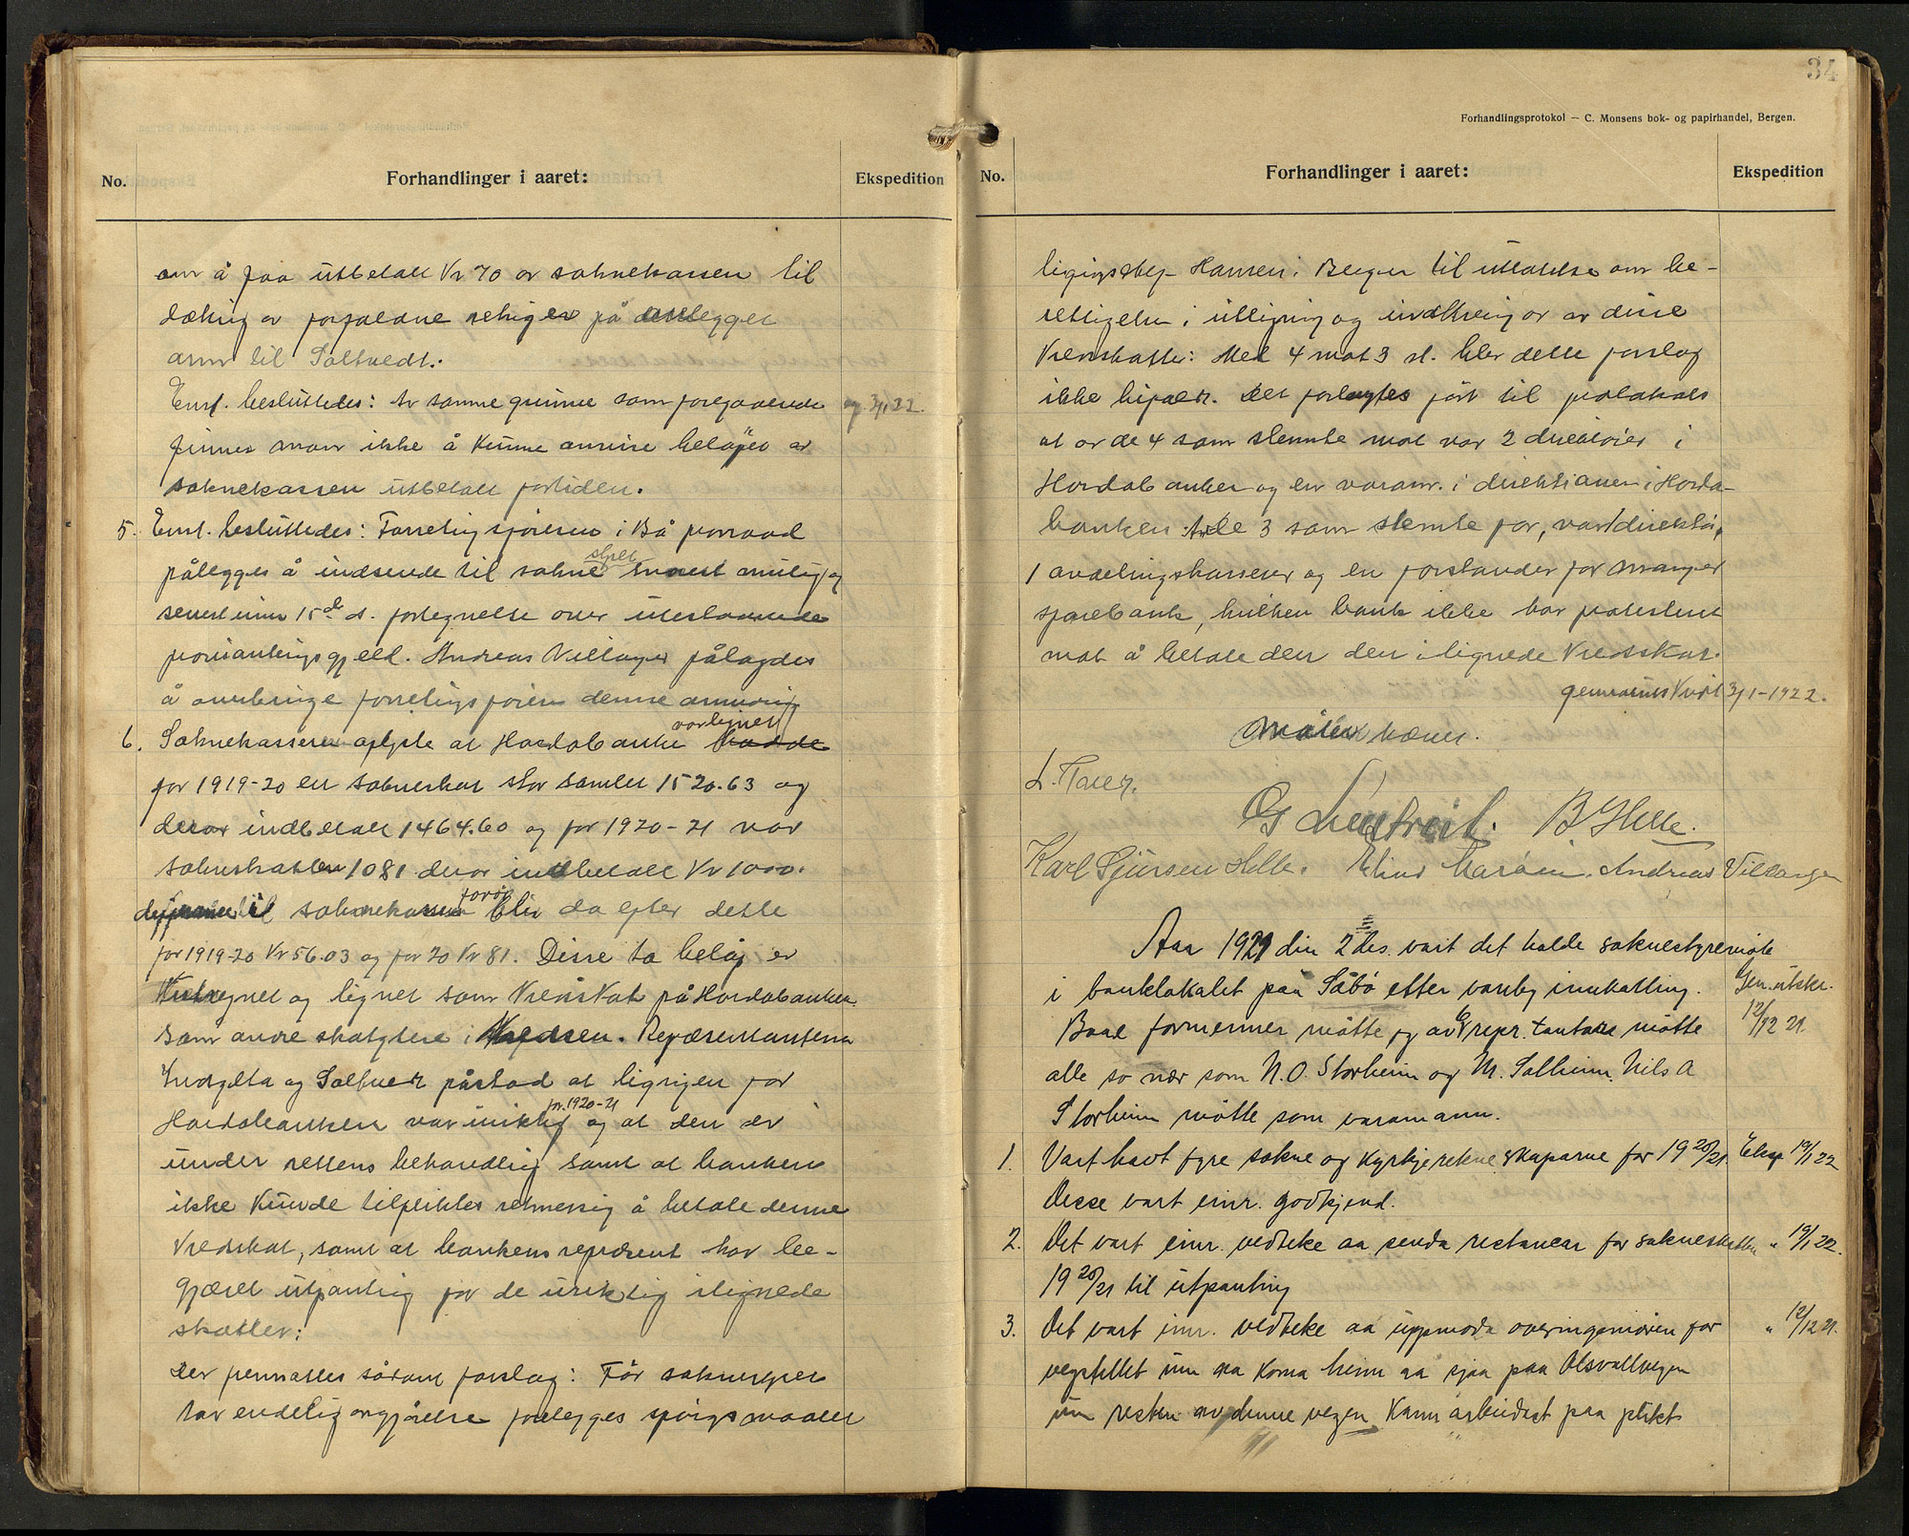 No.
Forhandlinger i aaret:
Ekspedition
om å faa utbetalt Kr 70 av soknekassen til
dækning av forfaldne avlegget
arm til Soltvedt.
Enst. besluttedes: Av samme grunne som foregaaende
finnes man ikke å kunne anvise beløpet av
soknekassen utbetalt fortiden.
5. Enst. besluttedes: Forretningsføreren i Bø pouraad
pålegges å indsende til sokne styret snarest mulig og
senest innen 15de ds. fortegnelse over utestaaende
gjeld. Andreas Villanger pålagdes
å overbringe forretningsføreren denne anmodning
6. Soknekasseren oplyste at Hordabanken var lignet
for 1919-20 en sokneskat stor samlet 1520.63 og
derav indbetalt 1464.60 og for 1920-21 var
sokneskatten 1081 derav indbetalt Kr 1000.
til soknekassen blir da efter dette
for 1919-20 Kr 56.03 og for 20 Kr 81. Disse to beløp er
og lignet som Kredsskat på Hordabanken
som andre skatydere i Kredsen. Repræsentanterne
og Soltvedt påstod at ligningen for
Hordabanken var uriktig for 1920-21 og at den er
under rettens behandling samt at banken
ikke kunde tilpliktes å betale denne
Kredsskat, samt at bankens repræsent har be-
gjæret utpanting for de uriktig ilignede
skatter:
Der fremsattes sådant forslag: Før soknestyret
tar endelig avgjørelse forelægges spørgsmaalet
34
Forhandlingsprotokol — C. Monsens bok- og papirhandel, Bergen.
No.
Forhandlinger i aaret:
Ekspedition
Hansen i Bergen til uttalelse om be-
rettigelsen i utligning og inddrivning av disse
Kredsskatter: Med 4 mot 3 st. blev dette forslag
ikke bifaldt. Det forlangtes ført til protokols
at av de 4 som stemte mot var 2 direktører i
Hordabanken og en varam. i direktionen i Horda-
banken. Av de 3 som stemte for, var 1 direktør,
1 avdelingskasserer og en forstander for Manger
sparebank, hvilken bank ikke har protestert
mot å betale den den ilignede Kredsskat.
3/1-1922.
Møtet hævet.
B Helle.
Karl Gjursen Helle. Andreas Villanger
Aar 1921 din 2 des. vart det halde soknestyremøte
i banklokalet paa Säbø etter vanleg innkalling.
Baae formenner møtte og av repr. møtte
alle so nær som N. O. Storheim og M. Solheim. Nils A
Storheim møtte som varamann.
Gen. utskr.
12/12 21.
1. Vart havt fyre sokne og kyrkjerekneskaparne for 1920/21. Eksp 19/1 22
Desse vart einr. godkjend.
2. Det vart einr. vedteke aa senda restancar for sokneskatten " 19/1 22.
1920/21 til utpanting
3. Det vart einr. vedteke aa uppmoda overingeniøren for " 12/12 21.
vegstellet um aa koma heim aa sjaa paa Olsvollvegen
um resten av denne vegen kann arbeidast paa plikt